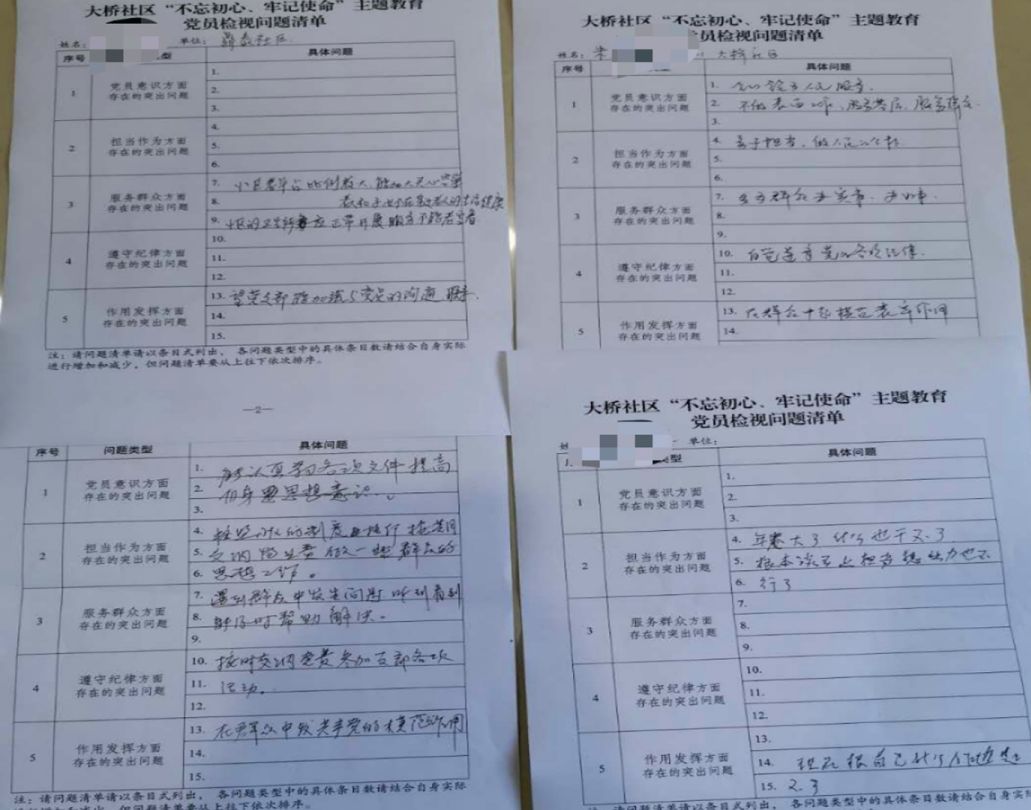 大桥社区“不忘初心、牢记使命”主题教育
党员检视问题清单
姓名： 单位： 社区
序号 型 具体问题
1 党员意识方面存在的突出问题
1.
2.
3.
2 担当作为方面存在的突出问题
4.
5.
6.
3 服务群众方面存在的突出问题
7. 小区老年占比例较大，
8.
9.
4 遵守纪律方面存在的突出问题
10.
11.
12.
5 作用发挥方面存在的突出问题
13. 望党支部能加强与党员的沟通、联系.
14.
15.
注：请问题清单请以条目式列出， 各问题类型中的具体条目数请结合自身实际
进行增加和减少，但问题清单要从上往下依次排序。
—2—
大桥社区“不忘初心、牢记使命”主题教育
党员检视问题清单
姓名： 朱 大桥社区
序号 具体问题
1 党员意识方面存在的突出问题
1. 为人民服务.
2. 不做表面工作、服务基层、服务群众.
3.
2 担当作为方面存在的突出问题
4. 勇于担当，做人民公仆
5.
6.
3 服务群众方面存在的突出问题
7. 多为群众办实事，办好事.
8.
9.
4 遵守纪律方面存在的突出问题
10. 自觉遵守党的各项纪律.
11.
12.
5 作用发挥方面存在的突出问题
13. 在群众中起模范表率作用
14.
序号 问题类型 具体问题
1 党员意识方面存在的突出问题
1. 能认真学习各项文件提高
2. 自身要思想意识。
3.
2 担当作为方面存在的突出问题
4. 按照 的制度 执行 按期
5. 交纳党费做一些群众的
6. 思想工作。
3 服务群众方面存在的突出问题
7. 遇到群众中发生问题听到看到
8. 能及时帮助解决。
9.
4 遵守纪律方面存在的突出问题
10. 按时交纳党费参加支部各项
11. 活动。
12.
5 作用发挥方面存在的突出问题
13. 在群众中发共产党的模范作用
14.
15.
注：请问题清单请以条目式列出， 各问题类型中的具体条目数请结合自身实际
大桥社区“不忘初心、牢记使命”主题教育
党员检视问题清单
姓 单位：
型 具体问题
1 党员意识方面存在的突出问题
1.
2.
3.
2 担当作为方面存在的突出问题
4. 年老大了什么也干不了
5. 根本谈不上担当 能力也不
6. 行了
3 服务群众方面存在的突出问题
7.
8.
9.
4 遵守纪律方面存在的突出问题
10.
11.
12.
5 作用发挥方面存在的突出问题
13.
14. 现在 自己什么作
15. 不了
注：请问题清单请以条目式列出， 各问题类型中的具体条目数请结合